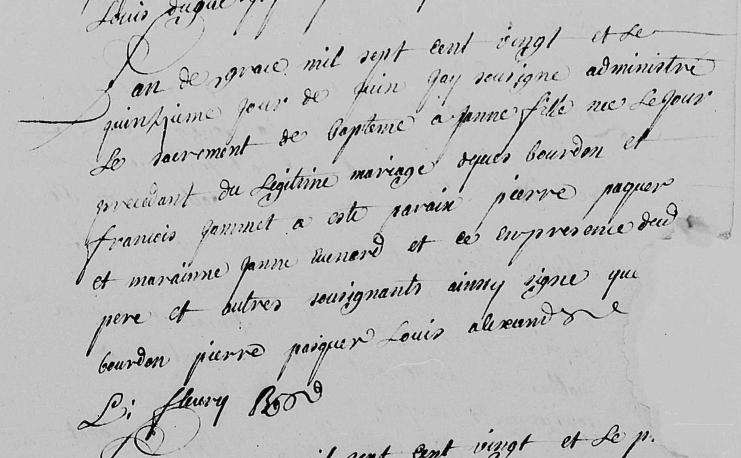 Louis
L an de grace mil sept cent vingt et le
quinzieme jour de juin jay sousigne administré
le sacrement de bapteme a janne fille nee le jour
precedant du legitime mariage bourdon et
francois jammet a esté parain pierre paquer
et marainne janne et ce en presence dud
pere et autres sousignants ainsy signe que
bourdon pierre pasquer Louis alexand
L: fleury
mil sept cent vingt et le p.